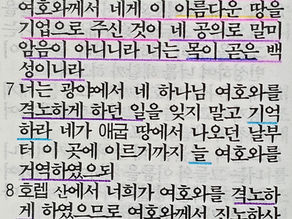 여호와께서 네게 이 아름다운 땅을
기업으로 주신 것이 네 공의로 말미
암음이 아니니라 너는 목이 곧은 백
성이니라
7 너는 광야에서 네 하나님 여호와를
격노하게 하던 일을 잊지 말고 기억
하라 네가 애굽 땅에서 나오던 날부
터 이 곳에 이르기까지 늘 여호와를
거역하였으되
8 호렙 산에서 너희가 여호와를 격노하
게 하였으므로 여호와께서 진노하사